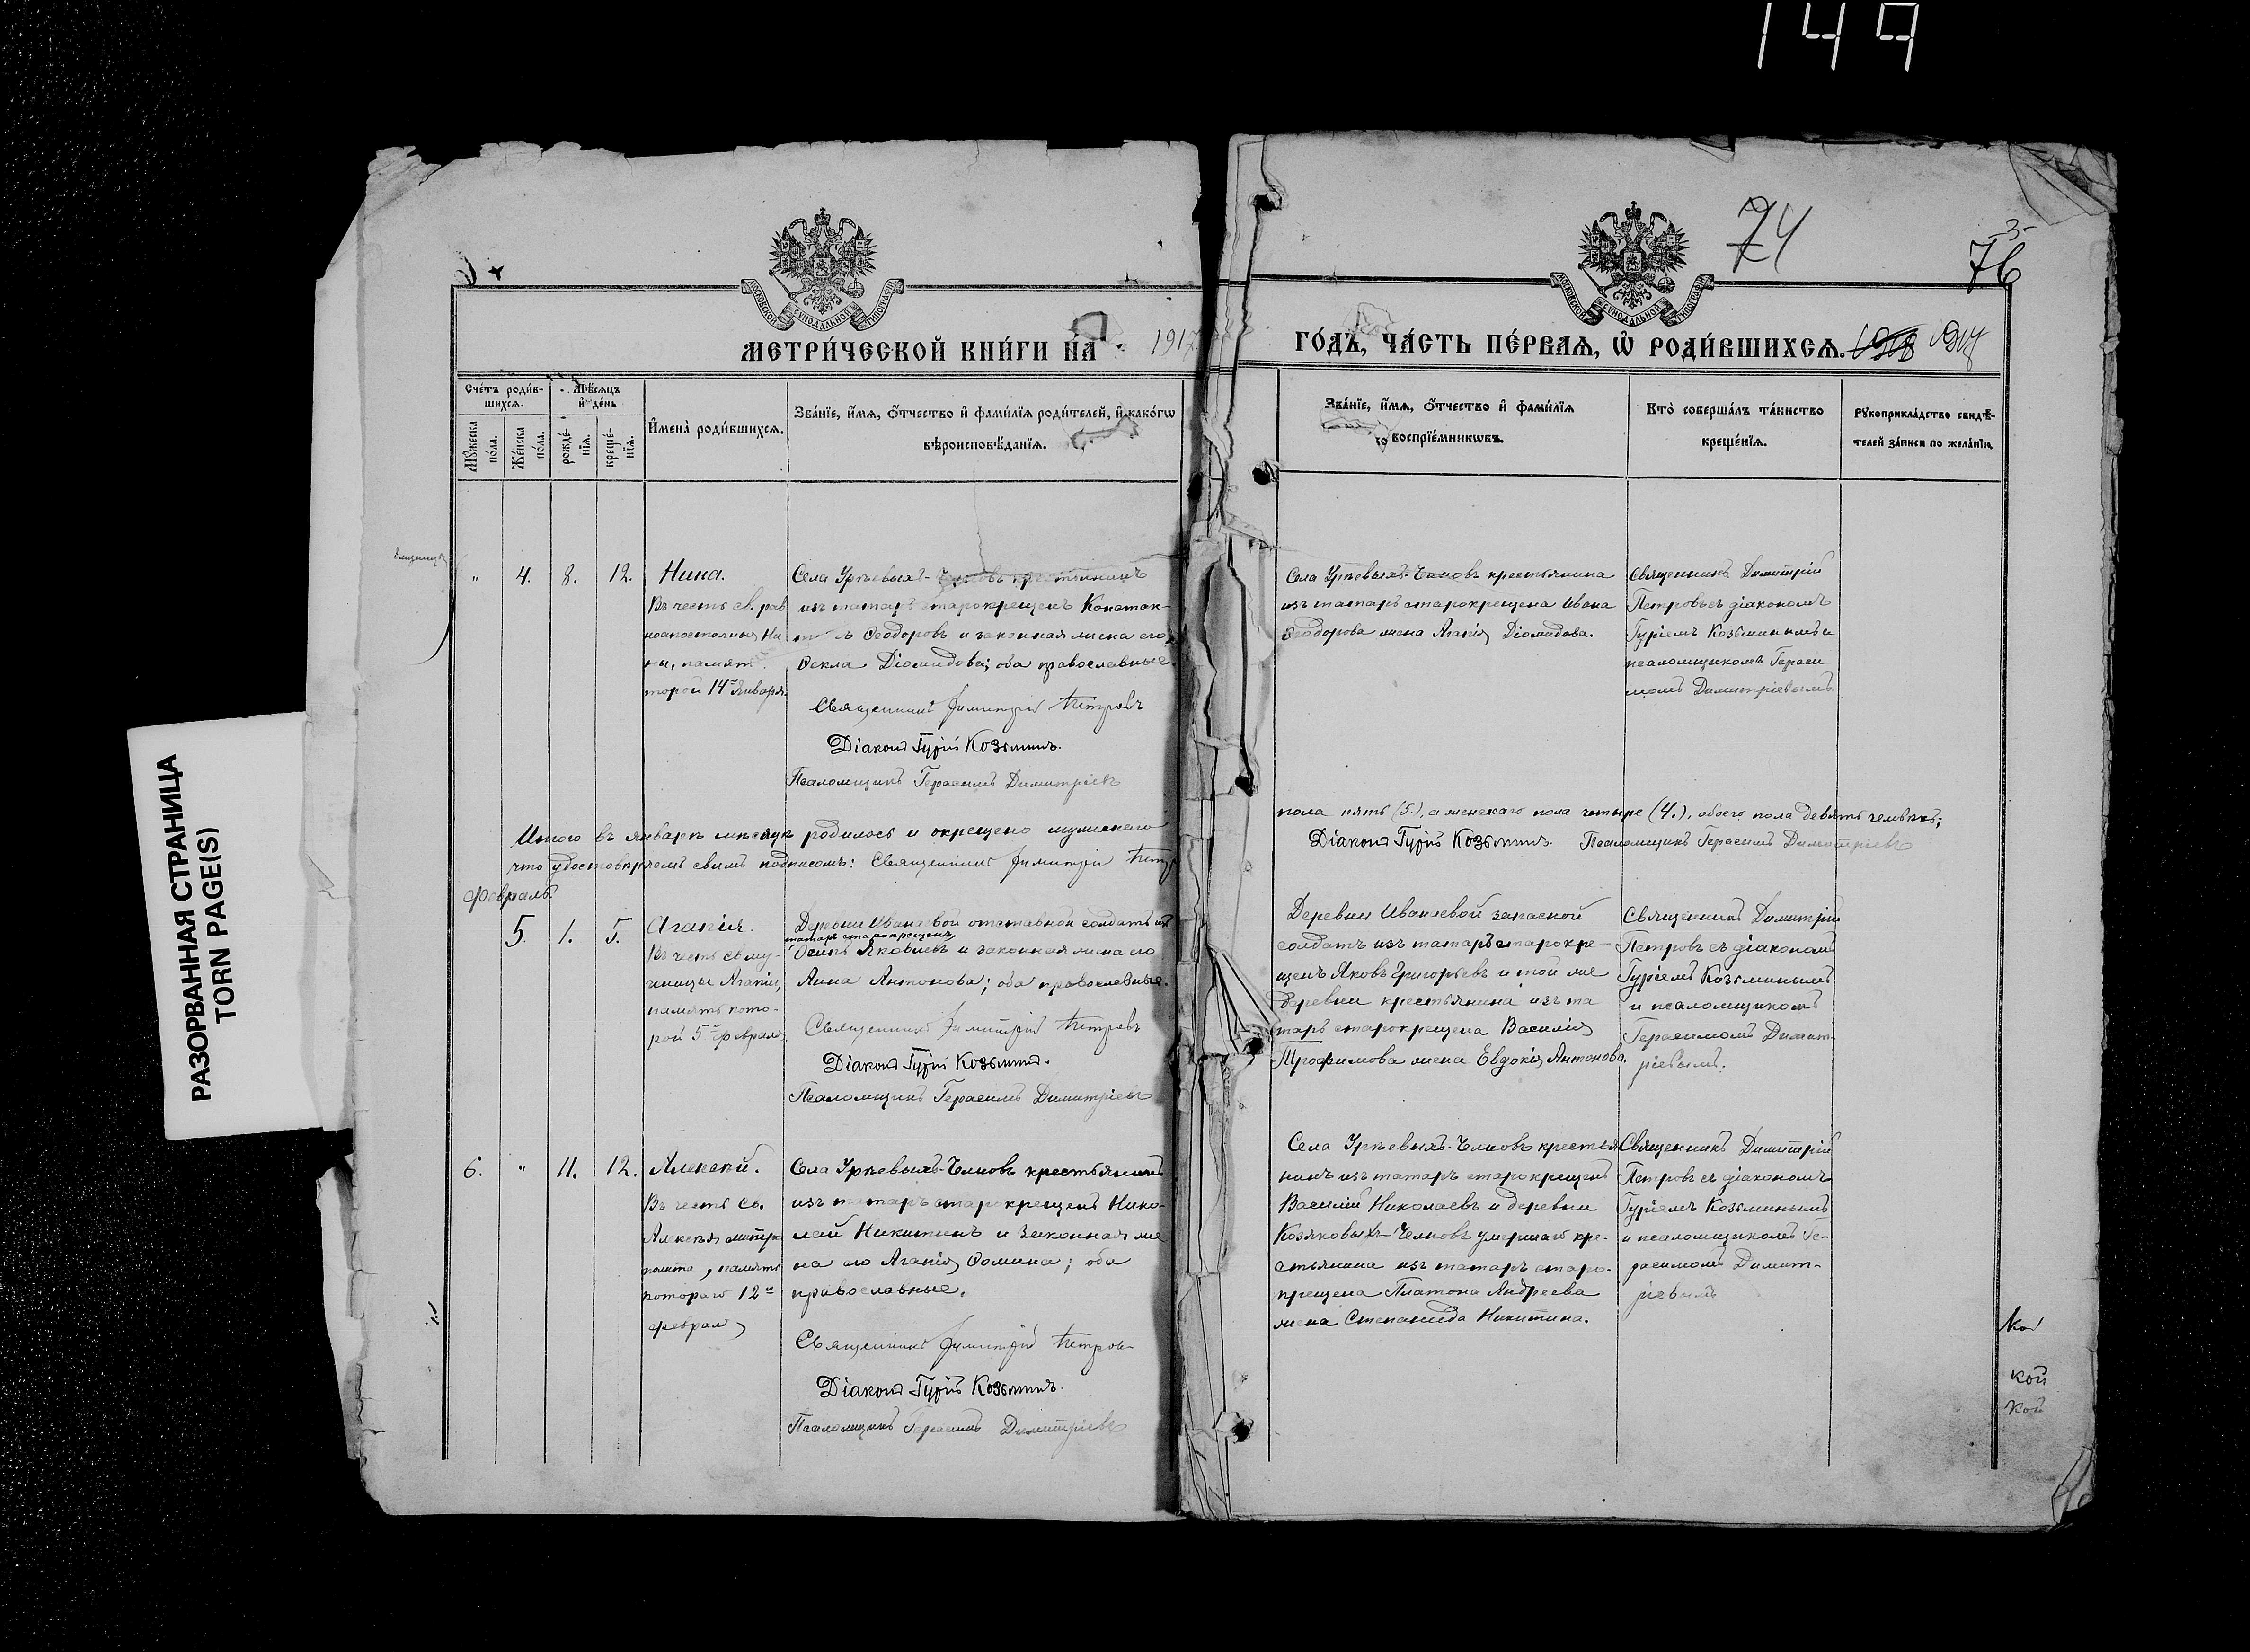 149
РАЗОРВАННАЯ СТРАНИЦА
TORN PAGE(S)
74
3
76
МОСКОВСКОЙ СѴНОДАЛЬНОЙ ТИПОГРАФІИ
МОСКОВСКОЙ СѴНОДАЛЬНОЙ ТИПОГРАФІИ
МЕТРИ́ЧЕСКОЙ КНИ́ГИ НА 1917
ГО́ДЪ, ЧА́СТЬ ПЕ́РВАЯ, Ѿ РОДИ́ВШИХСЯ. 1917
Сче́тъ роди́вшихся.
Мѣ́сяцъ и҆ де́нь
Мꙋ́жеска по́ла.
Же́нска по́ла.
рожде́нїѧ.
креще́нїѧ.
И҆мена̀ роди́вшихсѧ.
Зва́нїе, и҆́мѧ, ѻ҆́тчество и҆ фами́лїѧ роди́телей, и҆ како́гѡ
вѣроисповѣ́данїѧ.
Зва́нїе, и҆́мѧ, ѻ҆́тчество и҆ фами́лїѧ
воспрїе́мникѡвъ.
Кто̀ соверша́лъ та́инство
креще́нїѧ.
Рꙋкоприкла́дство свидѣ́-
телей за́писи по жела́нїю.
" 4. 8. 12. Нина.
Въ честь св. рав
ноапостольныя Ни
ны, памят
торой 14го Января.
Села Урѣевыхъ-Челновъ крестьянинъ
изъ татаръ старокрещенъ Констан-
Ѳеодоровъ и законная жена его
Ѳекла Діомидова; оба православные.
Священникъ Димитрій Петровъ
Діаконъ Гурій Козьминъ.
Псаломщикъ Герасимъ Димитріевъ
Села Урѣевыхъ-Челновъ крестьянина
изъ татаръ старокрещена Ивана
Ѳеодорова жена Агапія Діомидова.
Священникъ Димитрій
Петровъ съ діакономъ
Гуріемъ Козьминымъ и
псаломщикомъ Гераси
момъ Димитріевымъ
Итого въ январѣ мѣсяцѣ родилось и окрещено мужескаго
пола пять (5.), а женскаго пола четыре (4.), обоего пола девять человѣкъ;
что удостовѣряемъ своимъ подписомъ: Священникъ Димитрій Петр
Діаконъ Гурій Козьминъ. Псаломщикъ Герасимъ Димитріевъ
Февраль
5. 1. 5. Агапія.
Въ честь св. му-
ченицы Агапіи,
память кото-
рой 5го февраля.
Деревни Иванаевой отставной солдатъ изъ
татаръ старокрещенъ
Яковлевъ и законная жена его
Анна Антонова; оба православные.
Священникъ Димитрій Петровъ
Діаконъ Гурій Козьминъ.
Псаломщикъ Герасимъ Димитріевъ
Деревни Иванаевой запасной
солдатъ изъ татаръ старокре-
щенъ Яковъ Григорьевъ и той же
деревни крестьянина изъ та
таръ старокрещена Василія
Трофимова жена Евдокія Антонова.
Священникъ Димитрій
Петровъ съ діакономъ
Гуріемъ Козьминымъ
и псаломщикомъ
Герасимомъ Димит-
ріевымъ.
6. " 11. 12. Алексѣй.
Въ честь св.
Алексѣя митро
полита, память
котораго 12го
февраля
Села Урѣевыхъ-Челновъ крестьянинъ
изъ татаръ старокрещенъ Нико-
лай Никитинъ и законная же
на его Агапія Ѳомина; оба
православные.
Священникъ Димитрій Петровъ
Діаконъ Гурій Козьминъ.
Псаломщикъ Герасимъ Димитріевъ
Села Урѣевыхъ-Челновъ крестья
нинъ изъ татаръ старокрещенъ
Василій Николаевъ и деревни
Козяковыхъ-Челновъ умершаго кре-
стьянина изъ татаръ старо-
крещена Платона Андреева
жена Степанида Никитина.
Священникъ Димитрій
Петровъ съ діакономъ
Гуріемъ Козьминымъ
и псаломщикомъ Ге-
расимомъ Димит-
ріевымъ
кой
кой